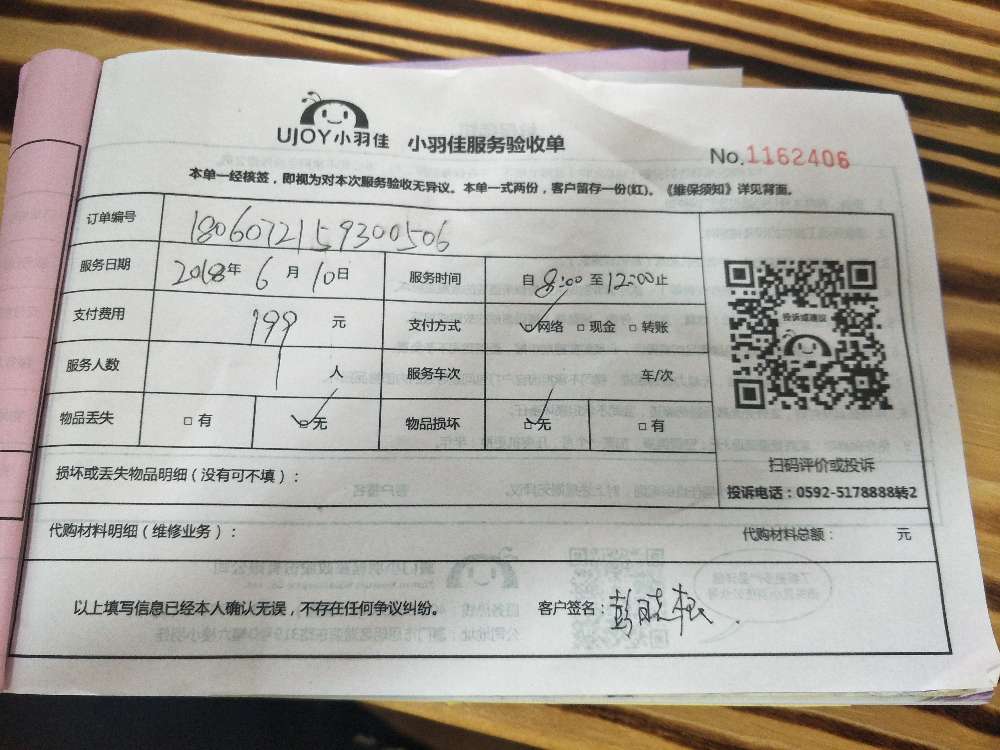 UJOY小羽佳 小羽佳服务验收单
No.1162406
本单一经核签，即视为对本次服务验收无异议。本单一式两份，客户留存一份(红)。《维保须知》详见背面。
订单编号 1806072159300506
服务日期 2018年6月10日 服务时间 自8:00至12:00止
支付费用 199元 支付方式 网络 现金 转账
服务人数 1人 服务车次 车/次
物品丢失 有 无 物品损坏 无 有
投诉或建议
扫码评价或投诉
投诉电话：0592-5178888转2
损坏或丢失物品明细（没有可不填）：
代购材料明细（维修业务）： 代购材料总额： 元
以上填写信息已经本人确认无误，不存在任何争议纠纷。 客户签名：彭